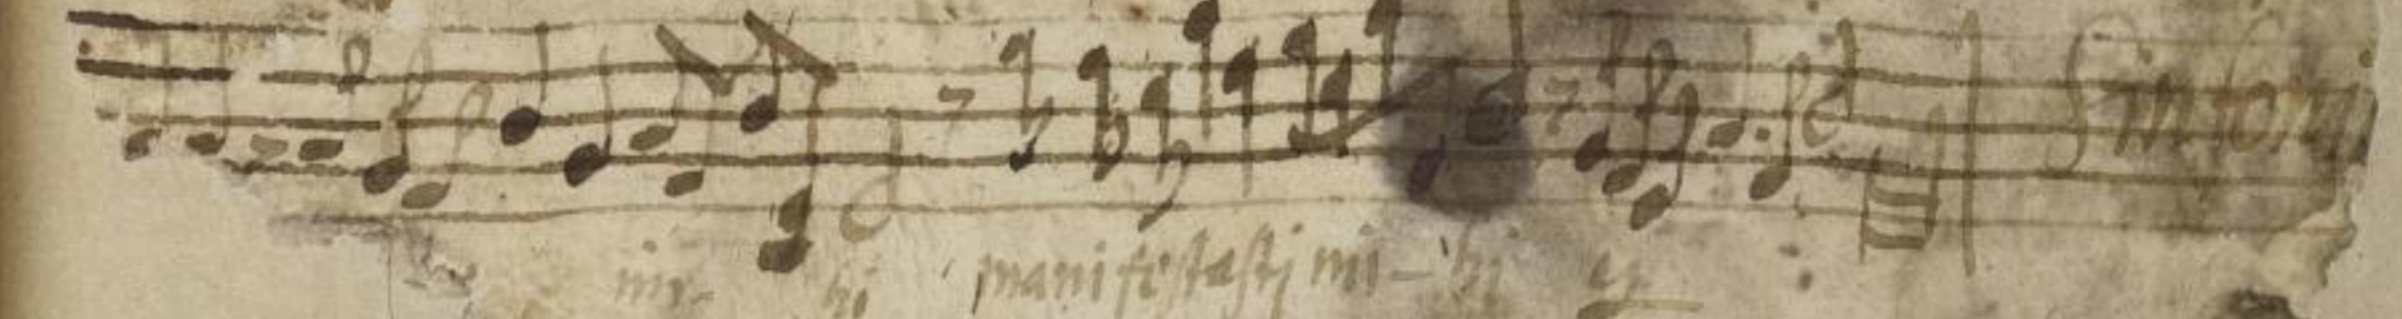 Sinfoni
mi- hi manifestasti mi - hi ij